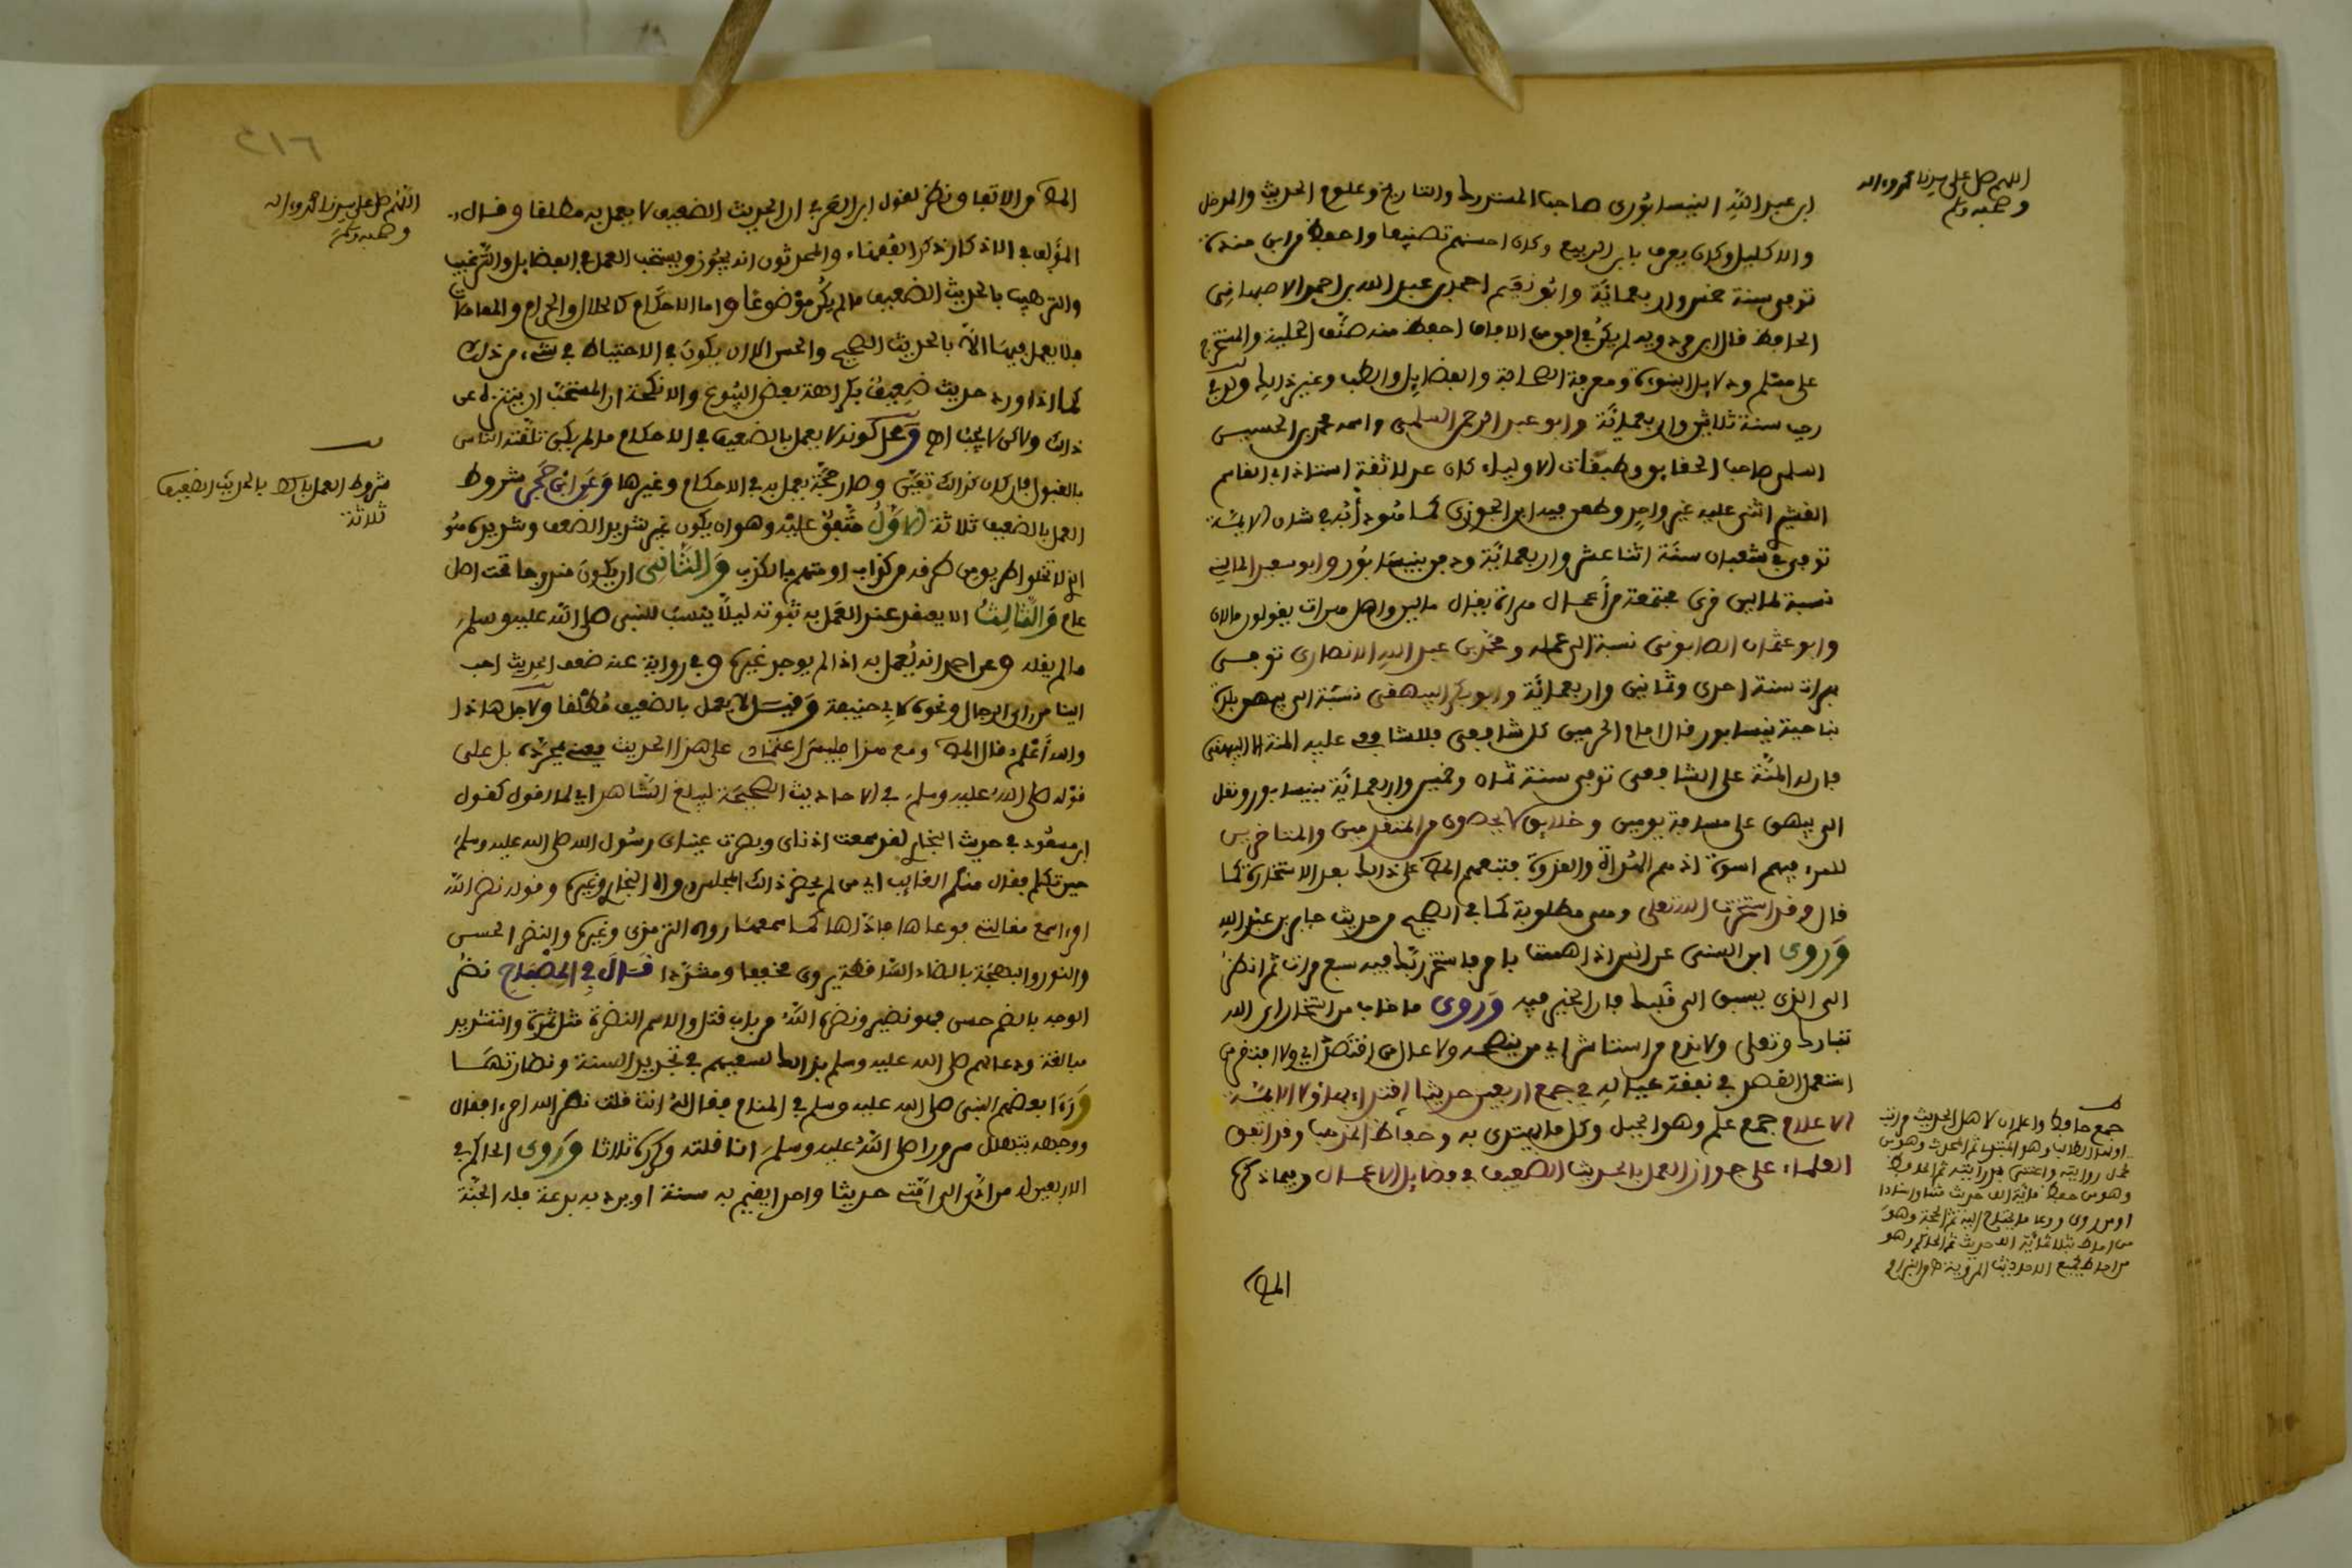 اللهم صل على سيدنا محمد واله
وصحبه وسلم
ابن عبد الله النيسابوري صاحب المستدرك والتاريخ وعلوم الحديث والمدخل
والاكليل وكان يعرف بابن البيع وكان احسنهم تصنيفا واحفظ من ابن مندة
توفي سنة خمس واربعمائة وابو نعيم احمد بن عبد الله بن احمد الاصبهاني
الحافظ قال ابن مردويه لم يكن في افق من الافاق احفظ منه صنف الحلية والمستخرج
على مسلم ودلايل النبوءة ومعرفة الصحابة والفضايل والطب وغير ذلك
رجب سنة ثلاثين واربعمائة وابو عبد الرحمن السلمي واسمه محمد بن الحسين
السلمي صاحب الحقايق وطبقات الاولياء كان عدلا ثقة استاذ ابي القاسم
القشيري اثنى عليه غير واحد وطعن فيه ابن الجوزي كما هو دأبه في شان الايمة
توفي في شعبان سنة اثنا عشر واربعمائة ودفن بنيسابور وابو سعد الماليني
نسبة لمالين قرى مجتمعة من أعمال هراة يقال مالين واهل هرات يقولون مالان
وابو عثمان الصابوني نسبة الى عمله ومحمد بن عبد الله الانصاري توفي
بهرات سنة احدى وثمانين واربعمائة وابو بكر البيهقي نسبة الى بيهق بلدة
بناحية نيسابور قال امام الحرمين كل شافعي فللشافعي عليه المنة الا البيهقي
فان له المنة على الشافعي توفي سنة ثمان وخمسين واربعمائة بنيسابور ونقل
الى بيهق على مسافة يومين وخلايق لا يحصون من المتقدمين والمتاخرين
للمرء فيهم اسوة اذ هم السراة والقدوة فتبعهم المص على ذلك بعد الاستخارة كما
قال وقد استخرت الله تعلى وهي مطلوبة كما في الصحيح من حديث جابر بن عبد الله
وروى ابن السني عن انس اذا هممت بامر فاستخر ربك فيه سبع مرات ثم انظر
الى الذي يسبق الى قلبك فان الخير فيه وروى ما خاب من استخار اي الله
تبارك وتعلى ولا ندم من استشار اي من ينصحه ولا عال من اقتصد اي ولا افتقر من
استعمل القصد في نفقة عياله في جمع اربعين حديثا اقتداء بهاؤلا الايمة
الاعلام جمع علم وهو الجبل وكل ما يهتدى به وحفاظ المذهب وقد اتفق
العلماء على جواز العمل بالحديث الضعيف في فضايل الاعمال وفيما ذكره
المص
جمع حافظ واعلم ان لاهل الحديث مراتب
اولها الطالب وهو المبتدي ثم المحدث وهو من
تحمل روايته واعتنى بدرايته ثم الحافظ
وهو من حفظ مائة الف حديث متنا واسنادا
او من روى ووعا ما يحتاج اليه ثم الحجة وهو
من احاط بثلاثمائة الف حديث ثم الحاكم وهو
من احاط بجميع الاحاديث المروية
٢١٦
اللهم صل على سيدنا محمد واله
وصحبه وسلم
المص من الاتفاق نظر لقول ابن العربي ان الحديث الضعيف لا يعمل به مطلقا وقال
المؤلف في الاذكار ذكر الفقهاء والمحدثون انه يجوز ويستحب العمل في الفضايل والترغيب
والترهيب بالحديث الضعيف ما لم يكن موضوعا واما الاحكام كالحلال والحرام والمعاملات
فلا يعمل فيها الا بالحديث الصحيح والحسن الا ان يكون في الاحتياط في شيء من ذلك
كما اذا ورد حديث ضعيف بكراهة بعض البيوع والانكحة ان المستحب ان يتنزه عن
ذلك ولكن لا يجب اه ومحل كونه لا يعمل بالضعيف في الاحكام ما لم يكن تلقته الناس
بالقبول فان كان كذلك تعين وصار حجة يعمل به في الاحكام وغيرها وعن ابن حجر شروط
العمل بالضعيف ثلاثة الاول متفق عليه وهو ان يكون غير شديد الضعف وشديده هو
الذي لا تخلو طريق من طرقه من كذاب او متهم بالكذب والثاني ان يكون مندرجا تحت اصل
عام والثالث الا يعتقد عند العمل به ثبوته ليلا ينسب للنبي صلى الله عليه وسلم
ما لم يقله وعن احمد انه يعمل به اذا لم يوجد غيره وفي رواية عنه ضعف الحديث احب
الينا من راي الرجال ونحوه لابي حنيفة وقيل لا يعمل بالضعيف مطلقا ولاجل هاذا
والله أعلم قال المص ومع هذا فليس اعتمادي على هذا الحديث يعني بمجرده بل على
قوله صلى الله عليه وسلم في الاحاديث الصحيحة ليبلغ الشاهد اي لما اقول كقول
ابن مسعود في حديث البخاري لقد سمعت اذناي وبصرت عيناي رسول الله صلى الله عليه وسلم
حين تكلم فقال منكم الغايب اي من لم يحضر ذلك المجلس رواه البخاري وغيره وقوله نضر الله
امرء اسمع مقالتي فوعاها فاداها كما سمعها رواه الترمذي وغيره والنضر الحسن
والنور والبهجة بالضاد الساقطة يروى مخففا ومشددا قال في المصباح نضر
الوجه بالضم حسن فهو نضير ونضره الله من باب قتل والاسم النضرة مثل ثمرة والتشديد
مبالغة ودعا لهم صلى الله عليه وسلم بذلك لسعيهم في تجديد السنة ونضارتها
ورءا بعضهم النبي صلى الله عليه وسلم في المنام فقال له انت قلت نضر الله امرءا فقال
ووجهه يتهلل سرورا صلى الله عليه وسلم انا قلته وكرره ثلاثا وروى الحاكم في
الاربعين له من ادى الى امتي حديثا واحدا يقيم به سنة او يرد به بدعة فله الجنة
شروط العمل بالحديث الضعيف
ثلاثة